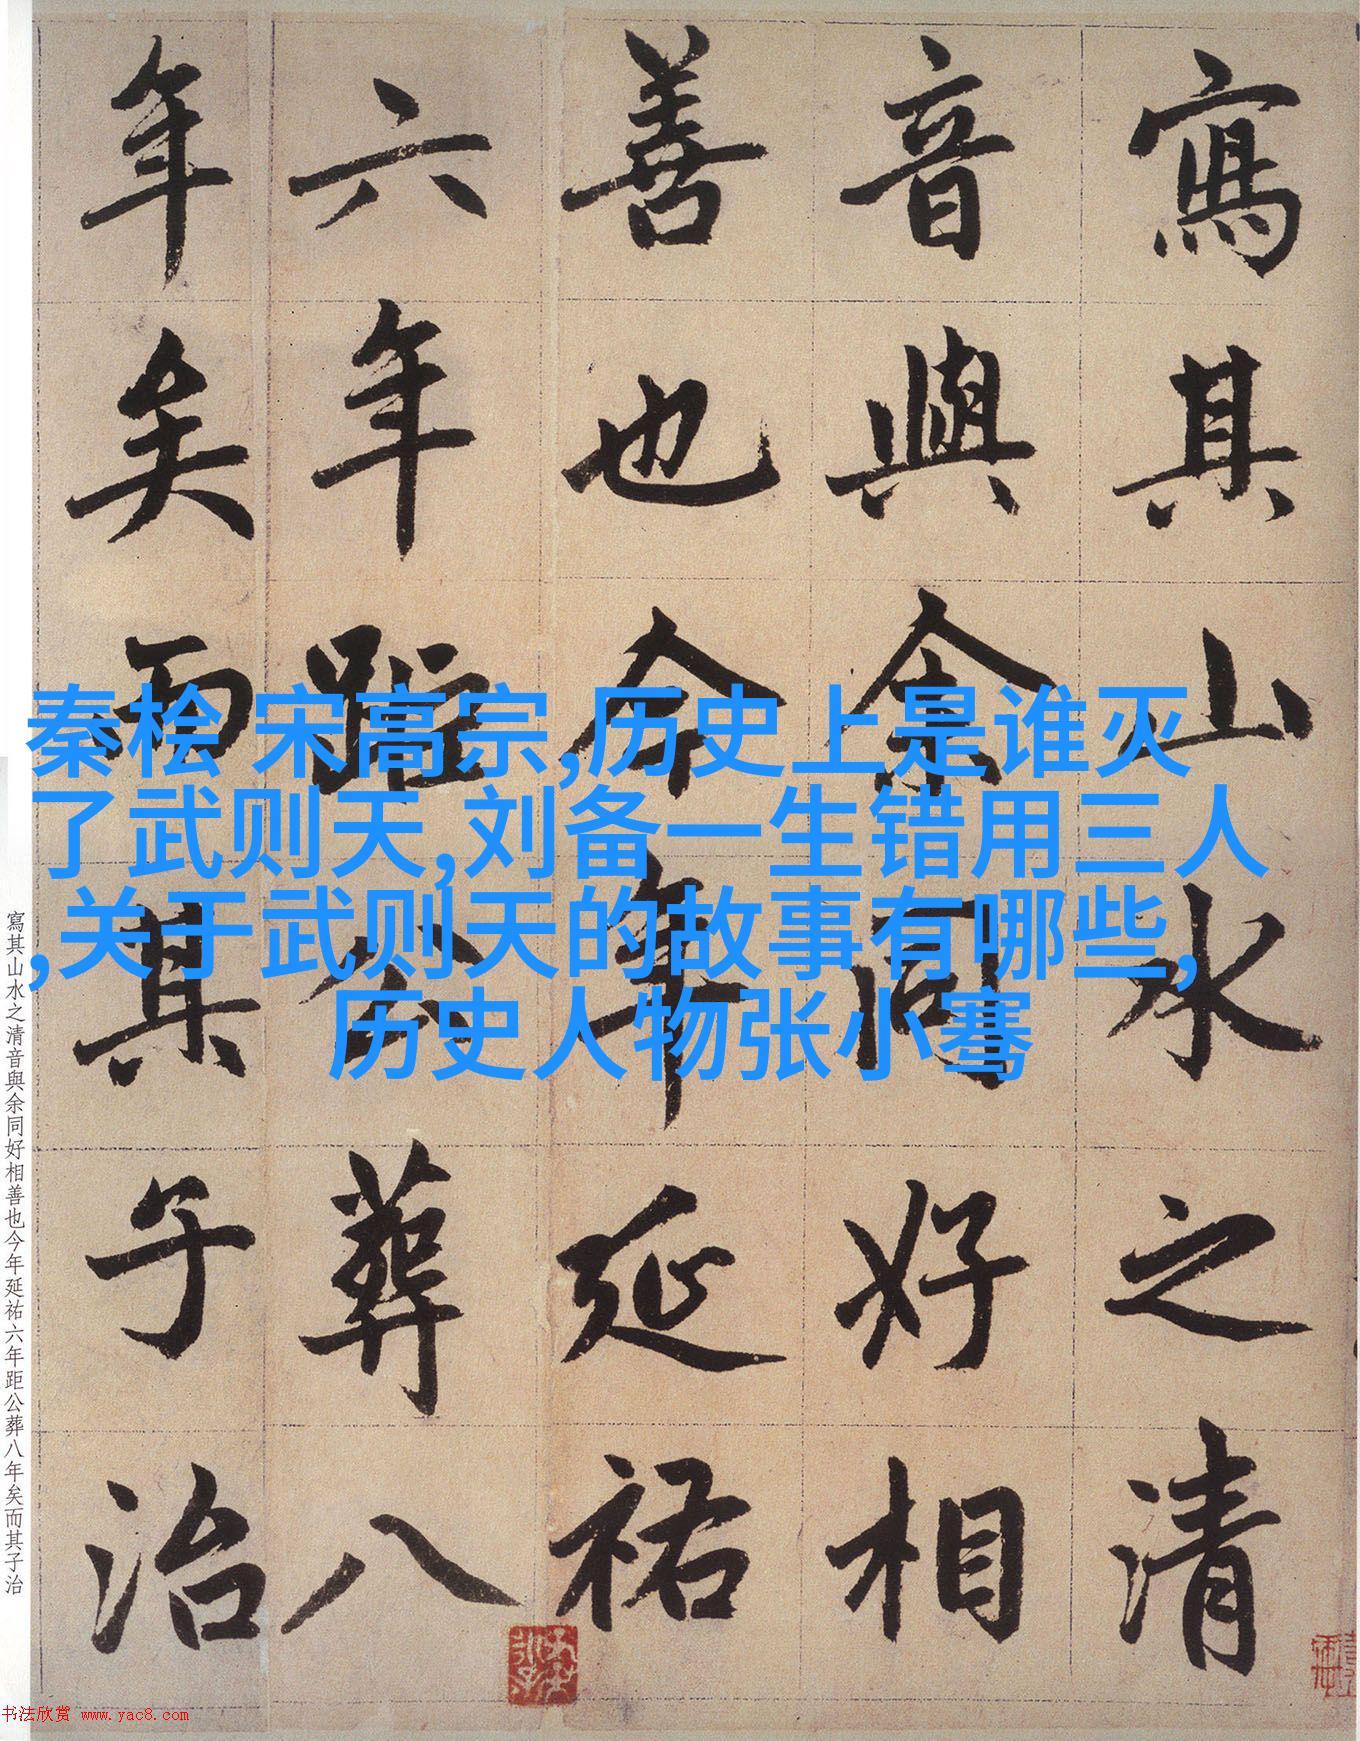 寫其山水之清
音與余同好相
善也今年延祐
六年距公葬八
年矣而其子治
秦桧 宋高宗,历史上是谁灭
了武则天,刘备一生错用三人
,关于武则天的故事有哪些,
历史人物张小骞
寫其山水之清音與余同好相善也今年延祐六年距公葬八年矣而其子治
书法欣赏 www.yac8.com